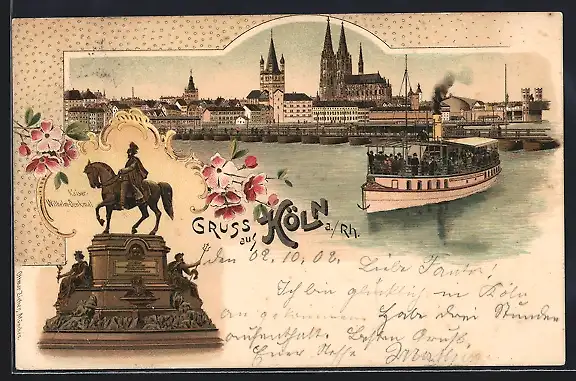 Kaiser-
Wilhelm Denkmal
GRUSS
aus KÖLN
a/Rh.
den 02.10.02.
Liebe Tante!
Ich bin glücklich in Köln
angekommen. Habe drei Stunden
Aufenthalt. Besten Gruß.
Euer Neffe